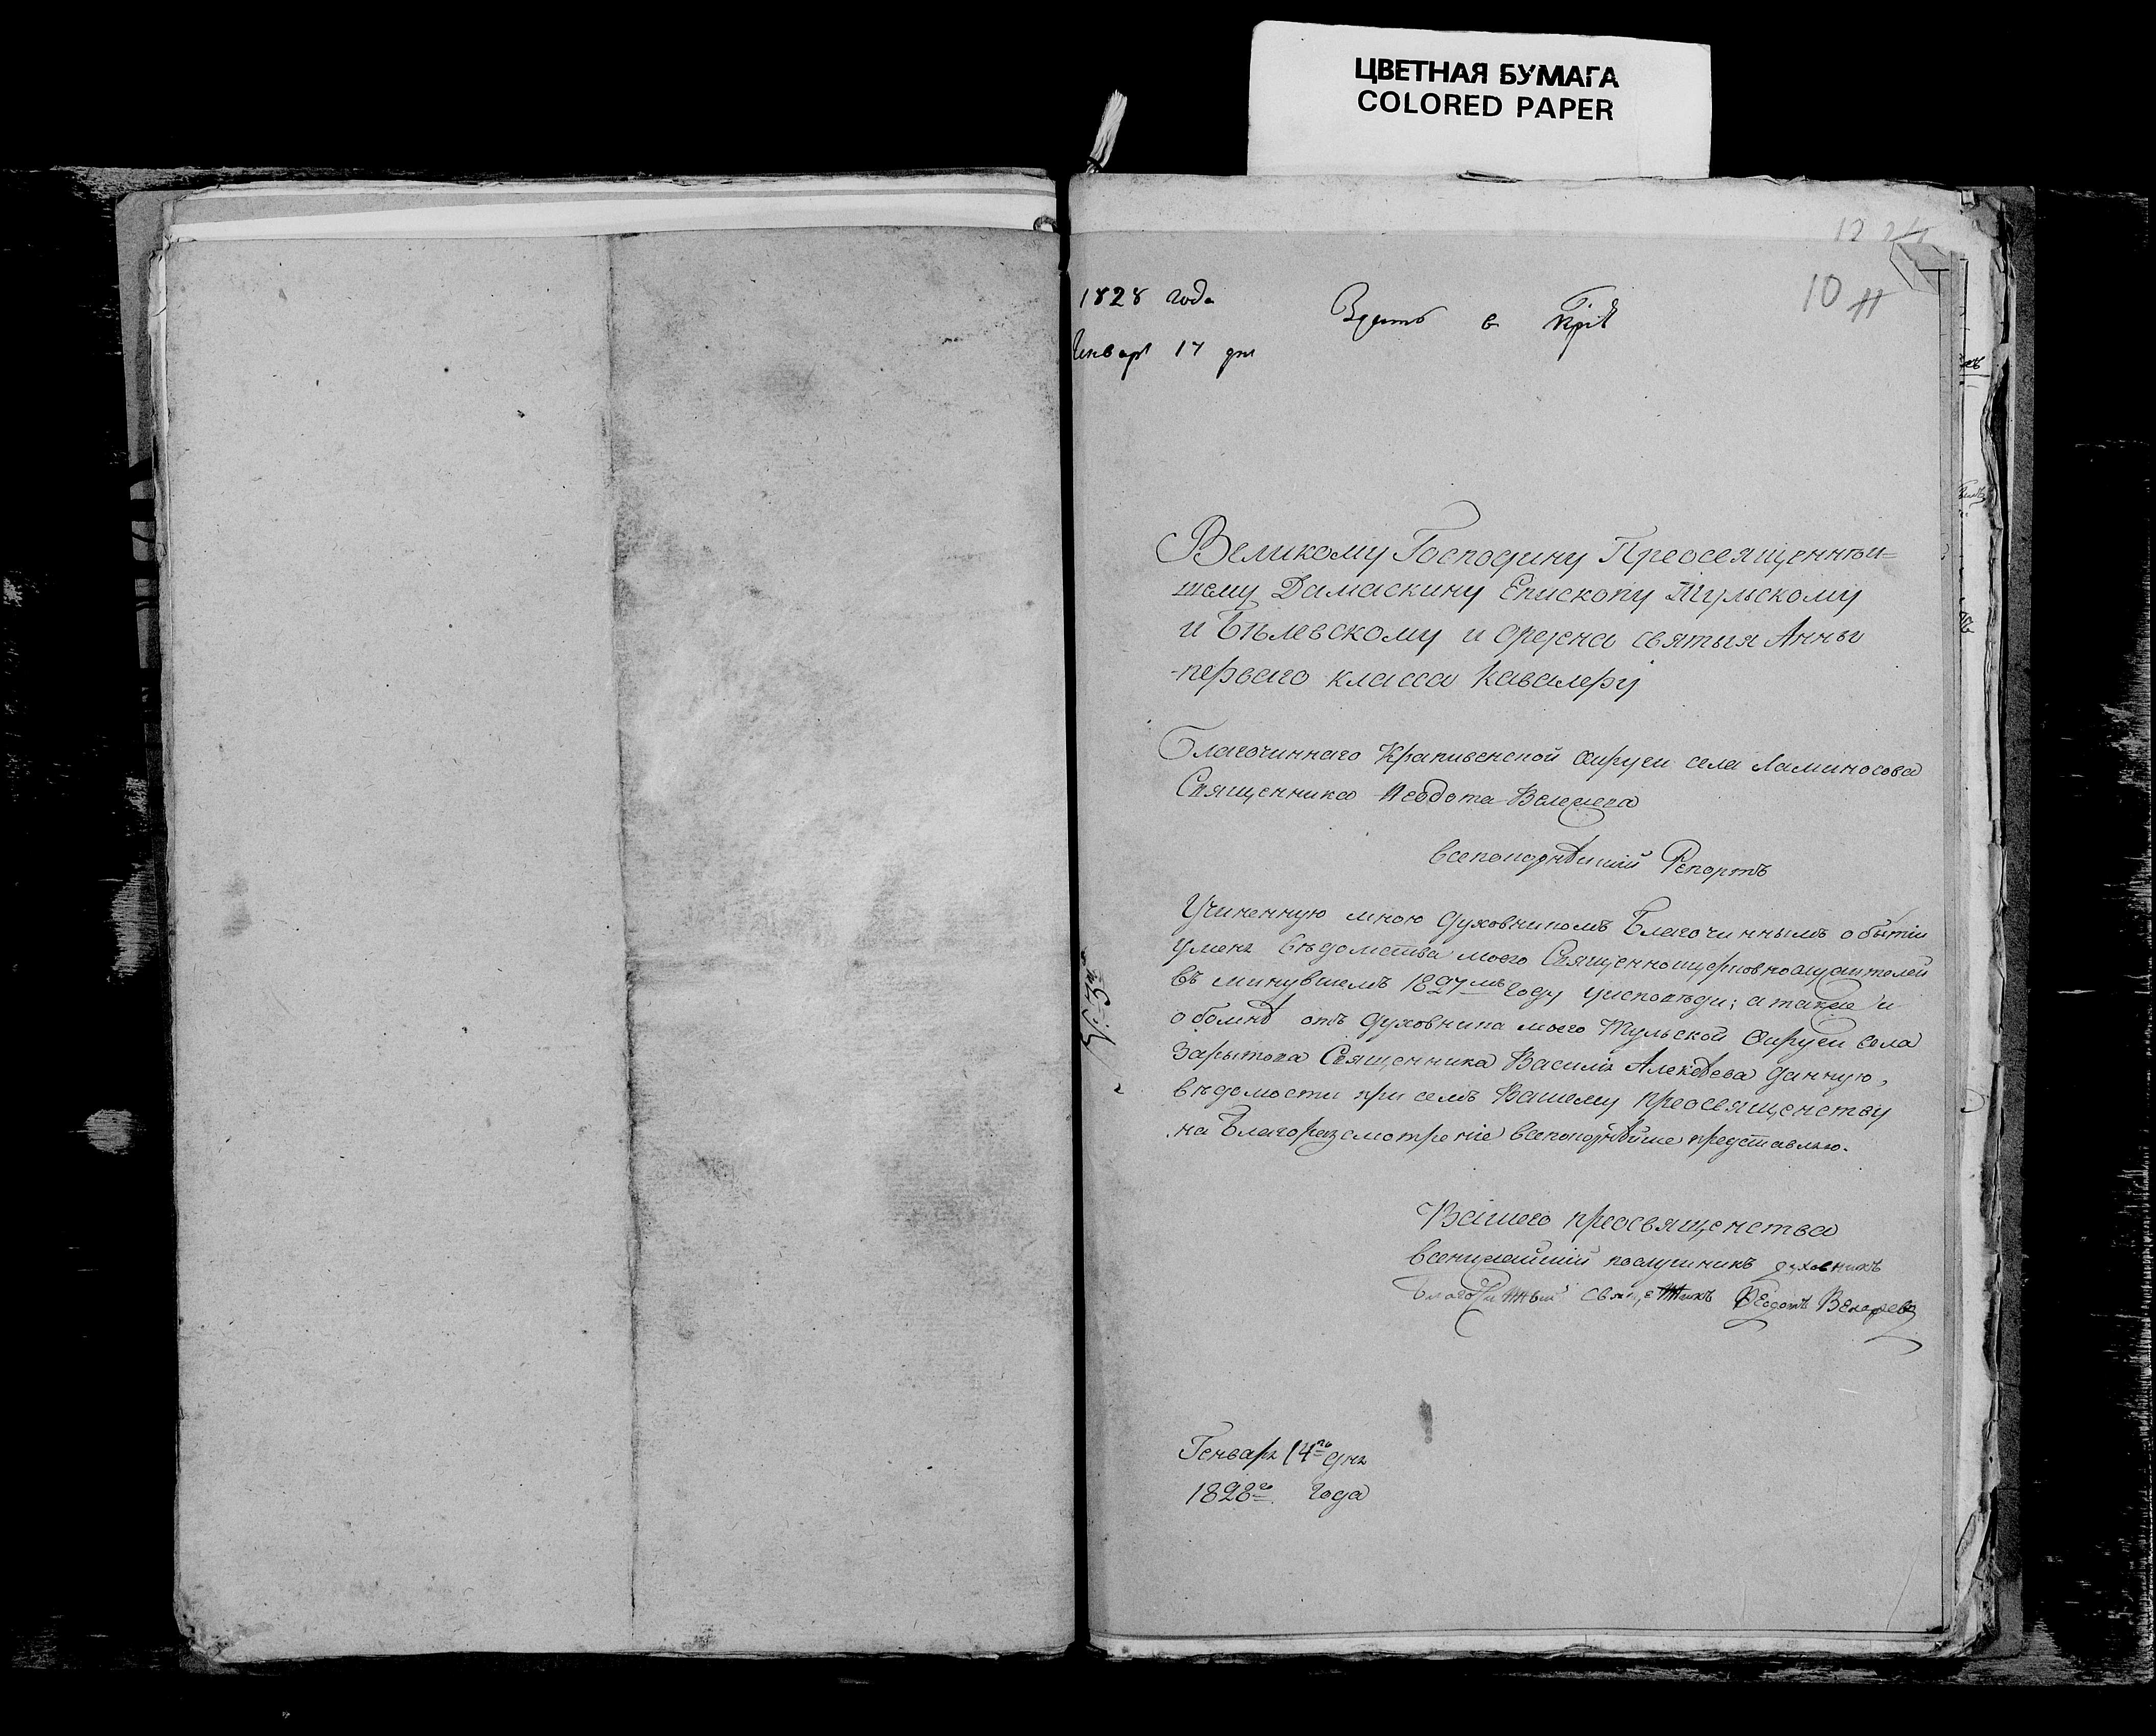 ЦВЕТНАЯ БУМАГА
COLORED PAPER
10
1828 года
Генваря 17 дня
Великому Господину Преосвященнѣй=
шему Дамаскину Епископу Тульскому
и Бѣлевскому и ордена святыя Анны
перваго класса Кавалеру
Благочиннаго Крапивенской округи села
Священника Ѳеодота
всепокорнѣйшій Репортъ
Учиненную мною духовникомъ Благочиннымъ о бытіи
у меня вѣдомства моего Священноцерковнослужителей
въ минувшемъ 1827мъ году у исповѣди; а также и
о бомнѣ отъ духовника моего Тульской Округи села
Зарытова Священника Василія Алексѣева данную,
вѣдомости при семъ Вашему преосвященству
на Благоразсмотреніе всепокорнѣйше представляю.
Вашего преосвященства
всенижайшій послушникъ духовникъ
Благочинный священникъ Ѳеодотъ
Генваря 14го дня
1828го года